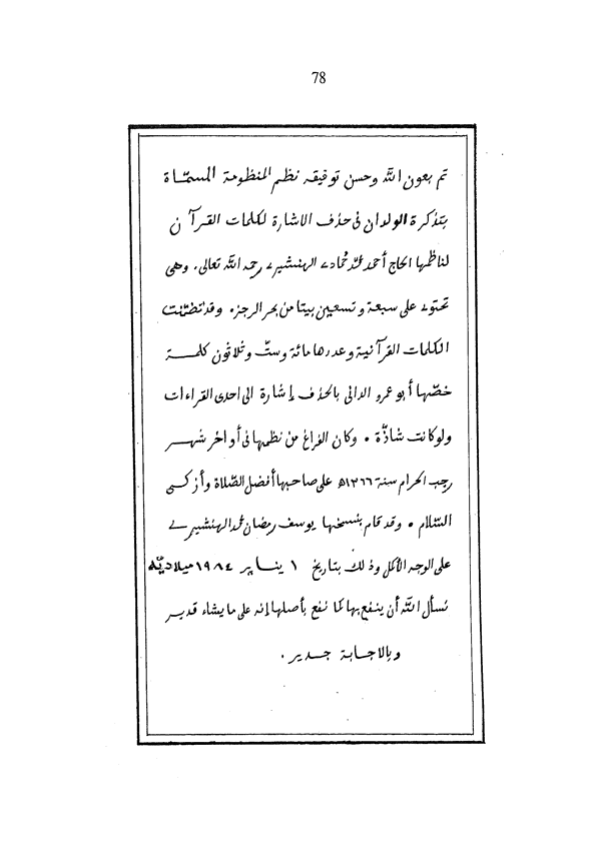 78
تم بعون الله وحسن توفيقه نظم المنظومة المسمّاة
بتذكرة الولدان فى حذف الاشارة لكلمات القرآن
لناظمها الحاج أحمد محمد حمادى الهنشيرى رحمه الله تعالى. وهى
تحتوى على سبعة وتسعين بيتا من بحر الرجز. وقد تضمّنت
الكلمات القرآنية وعددها مائة وستّ وثلاثون كلمة
خصّها أبو عمرو الدانى بالحذف إشارة الى احدى القراءات
ولو كانت شاذّة. وكان الفراغ من نظمها فى أواخر شهر
رجب الحرام سنة ١٣٦٦ھ على صاحبها أفضل الصّلاة وأزكى
السّلام. وقد قام بنسخها يوسف رمضان محمد الهنشيرى
على الوجه الأكمل وذلك بتاريخ ١ ينـاير ١٩٨٤ ميلاديّة
نسأل الله أن ينفع بها كما نفع بأصلها إنه على ما يشاء قدير
وبالاجابة جدير.